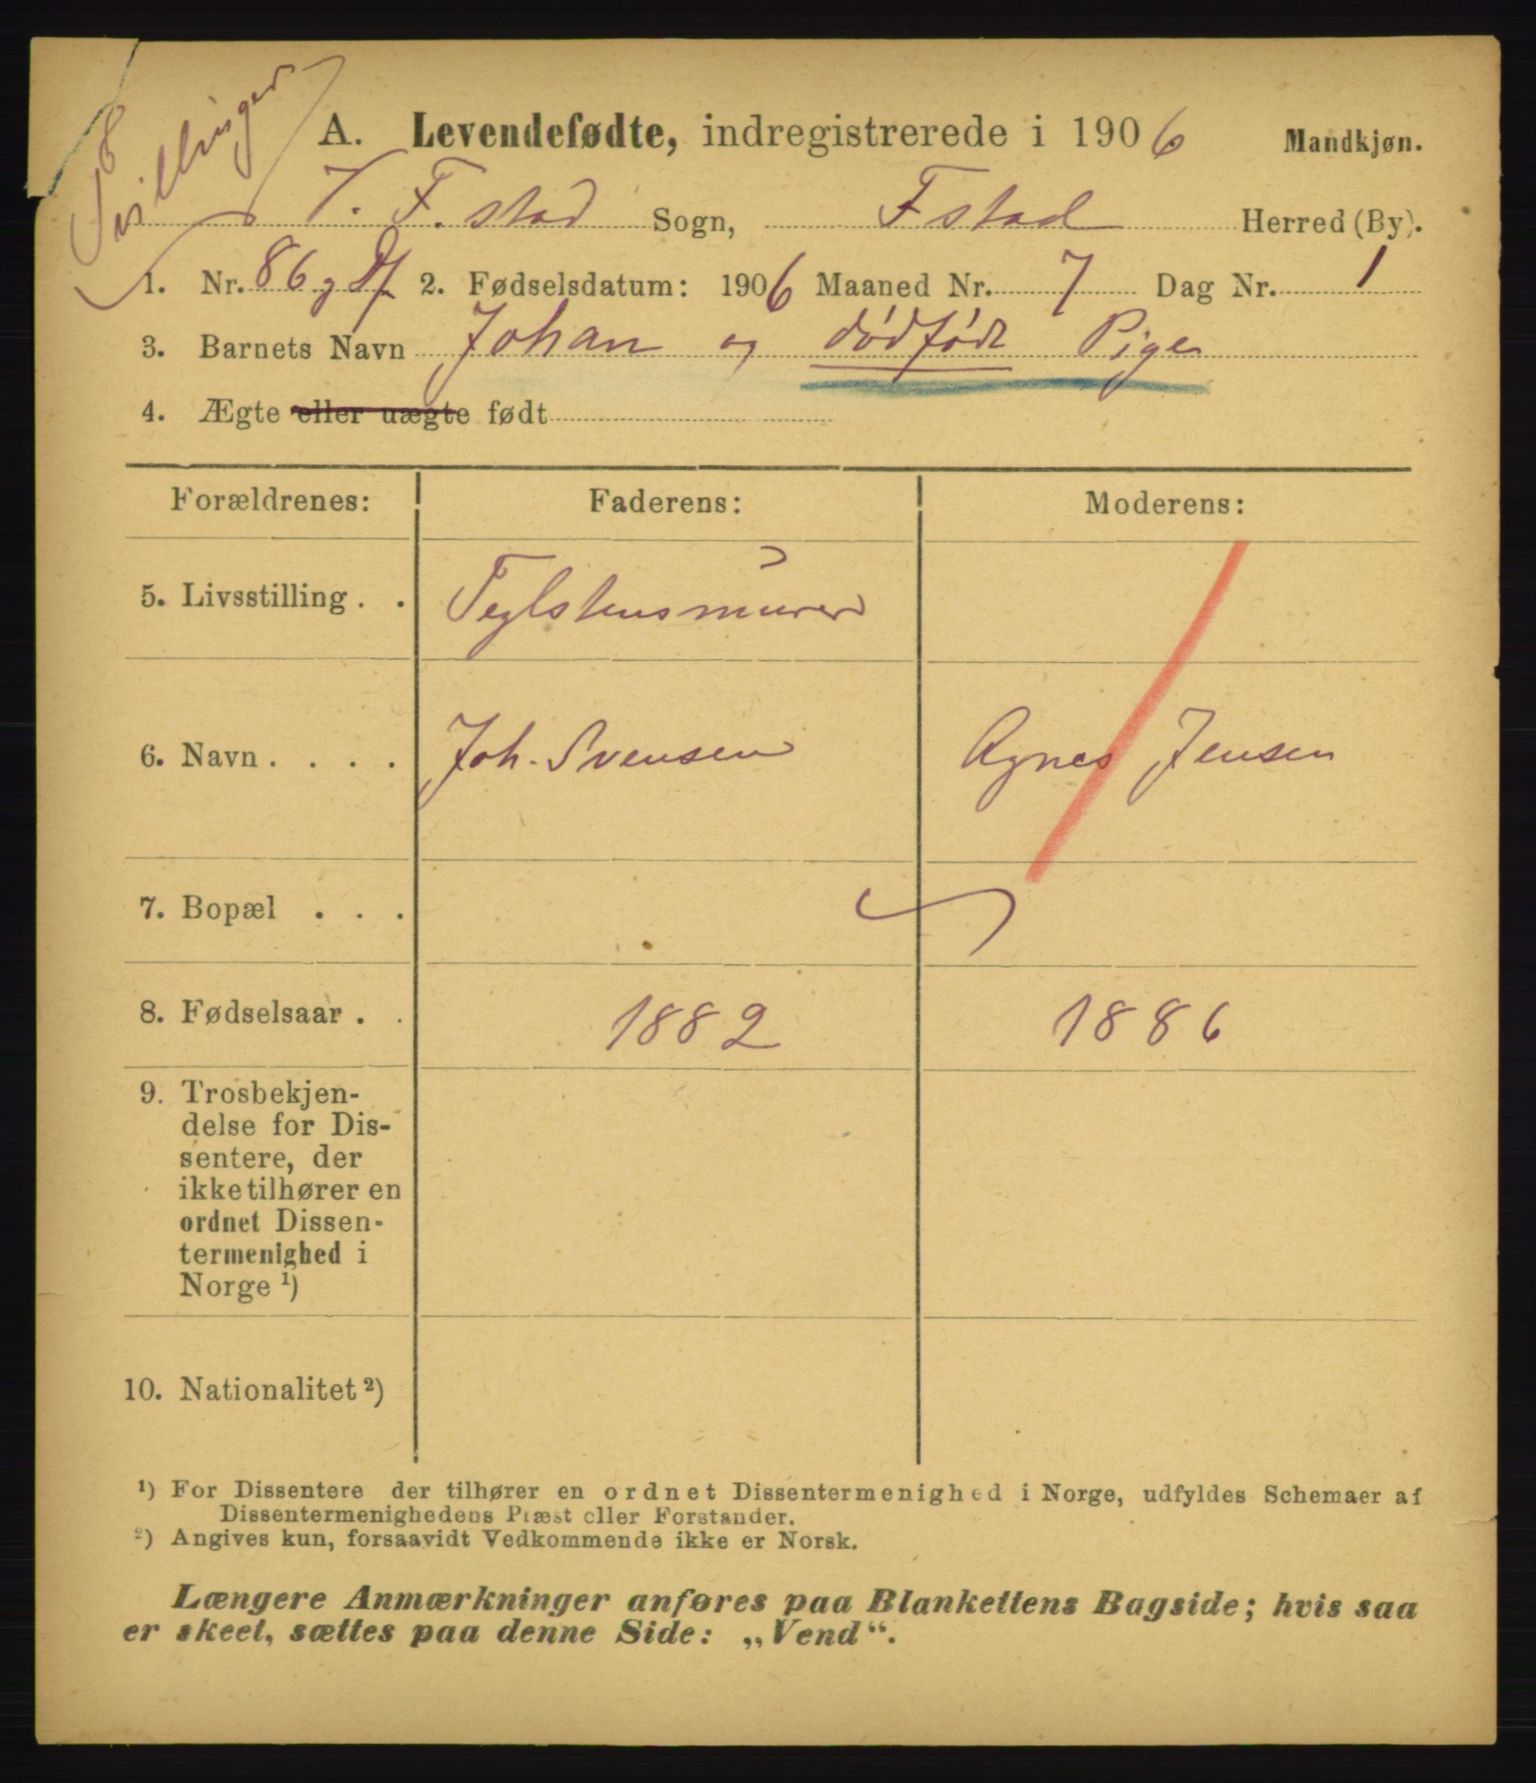 8
Tvillinger
A. Levendefødte, indregistrerede i 1906 Mandkjøn.
V. F.stad Sogn, Fstad Herred (By).
1. Nr. 86 og Df 2. Fødselsdatum: 1906 Maaned Nr. 7 Dag Nr. 1
3. Barnets Navn Johan og dødfødt Pige
4. Ægte eller uægte født
Forældrenes: Faderens: Moderens:
5. Livsstilling . . Teglstensmurer
6. Navn . . . . Joh. Svensen Agnes Jensen
7. Bopæl . . .
8. Fødselsaar . . 1882 1886
9. Trosbekjen-
delse for Dis-
sentere, der
ikke tilhører en
ordnet Dissen-
termenighed i
Norge ¹)
10. Nationalitet ²)
¹) For Dissentere der tilhører en ordnet Dissentermenighed i Norge, udfyldes Schemaer af
Dissentermenighedens Præst eller Forstander.
²) Angives kun, forsaavidt Vedkommende ikke er Norsk.
Længere Anmærkninger anføres paa Blankettens Bagside; hvis saa
er skeet, sættes paa denne Side: „Vend“.